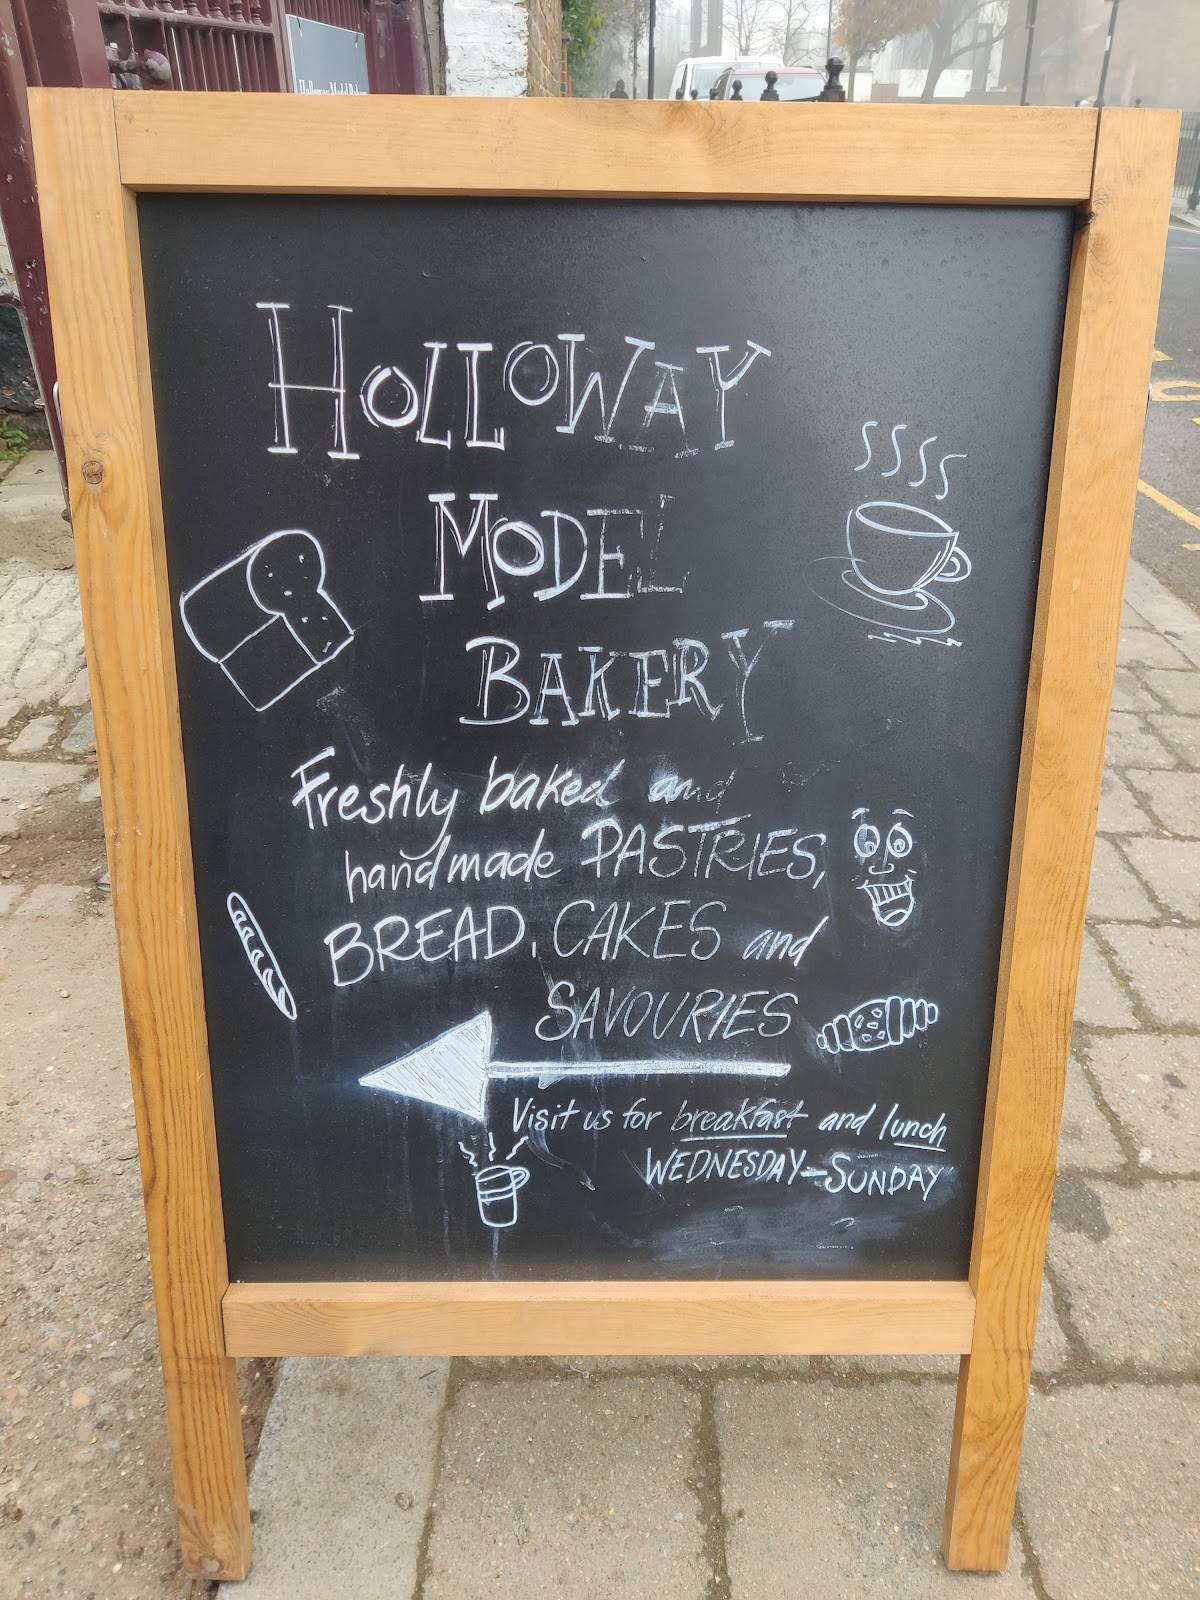 Holloway Model Bakery
HOLLOWAY
MODEL
BAKERY
Freshly baked and
handmade PASTRIES,
BREAD, CAKES and
SAVOURIES
Visit us for breakfast and lunch
WEDNESDAY-SUNDAY